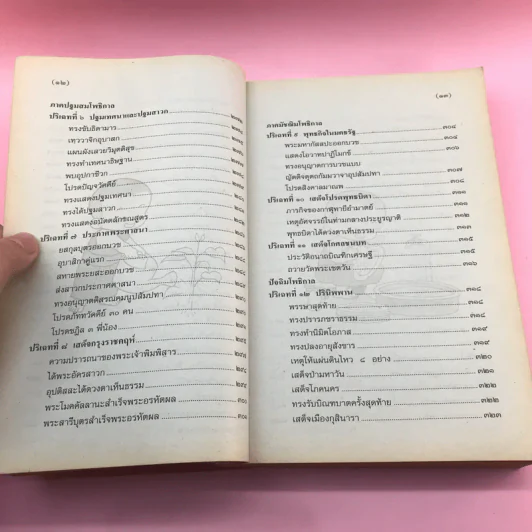 (๑๒)
ภาคปฐมสมโพธิกาล
ปริเฉทที่ ๖ ปฐมเทศนาและปฐมสาวก
ทรงขับธิดามาร
เทววาจิกอุบาสก
แผนผังเสวยวิมุตติสุข
ทรงทำเทศนาธิษฐาน
พบอุปกาชีวก
โปรดปัญจวัคคีย์
ทรงแสดงปฐมเทศนา
ทรงได้ปฐมสาวก
ทรงแสดงอนัตตลักขณสูตร
ปริเฉทที่ ๗ ประกาศพระศาสนา
ยสกุลบุตรออกบวช
อุบาสิกาคู่แรก
สหายพระยสะออกบวช
ส่งสาวกประกาศศาสนา
ทรงอนุญาตติสรณคมนูปสัมปทา
โปรดภัททวัคคีย์ ๓๐ คน
โปรดชฎิล ๓ พี่น้อง
ปริเฉทที่ ๘ เสด็จกรุงราชคฤห์
ความปรารถนาของพระเจ้าพิมพิสาร
ได้พระอัครสาวก
อุปติสสะได้ดวงตาเห็นธรรม
พระโมคคัลลานะสำเร็จพระอรหัตผล
พระสารีบุตรสำเร็จพระอรหัตผล
(๑๓)
ภาคมัชฌิมโพธิกาล
ปริเฉทที่ ๙ พุทธกิจในมคธรัฐ ๓๐๔
พระมหากัสสปะออกบวช ๓๐๔
แสดงโอวาทปาฏิโมกข์ ๓๐๖
ทรงอนุญาตการบวชแบบ
ญัตติจตุตถกัมมวาจาอุปสัมปทา ๓๐๗
โปรดสิงคาลมาณพ ๓๐๘
ปริเฉทที่ ๑๐ เสด็จโปรดพุทธบิดา ๓๑๑
ภารกิจของกาฬุทายีอำมาตย์ ๓๑๑
เหตุอัศจรรย์ในท่ามกลางประยูรญาติ ๓๑๒
พุทธบิดาได้ดวงตาเห็นธรรม ๓๑๓
ปริเฉทที่ ๑๑ เสด็จโกศลชนบท ๓๑๕
ประวัติอนาถบิณฑิกเศรษฐี ๓๑๕
ถวายวัดพระเชตวัน ๓๑๖
ปัจฉิมโพธิกาล
ปริเฉทที่ ๑๒ ปรินิพพาน ๓๑๘
พรรษาสุดท้าย ๓๑๘
ทรงปรารภชราธรรม ๓๑๘
ทรงทำนิมิตโอภาส ๓๑๙
ทรงปลงอายุสังขาร ๓๑๙
เหตุให้แผ่นดินไหว ๘ อย่าง ๓๒๐
เสด็จป่ามหาวัน ๓๒๑
เสด็จโภคนคร ๓๒๒
ทรงรับบิณฑบาตครั้งสุดท้าย ๓๒๒
เสด็จเมืองกุสินารา ๓๒๓